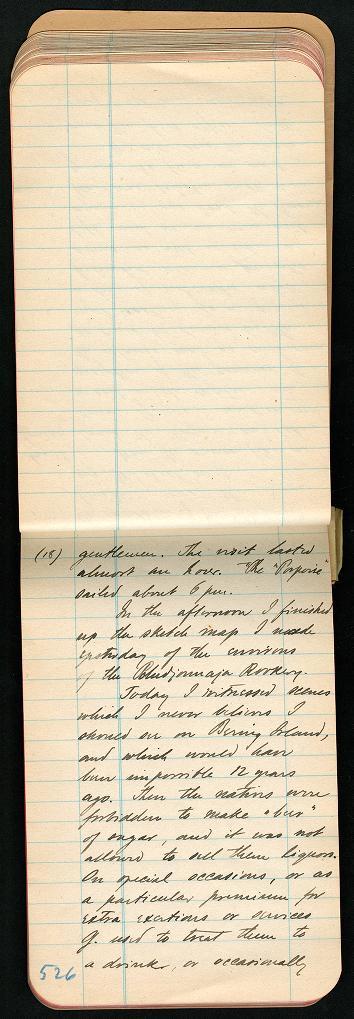 (18) gentlemen. The visit lasted
almost an hour. The "Porpoise"
sailed about 6 p.m.
In the afternoon I finished
up the sketch map I made
yesterday of the environs
of the Poludionnaja Rookery.
Today I witnessed scenes
which I never believed I
should see on Bering Island,
and which would have
been impossible 12 years
ago. Then the natives were
forbidden to make "beer"
of sugar, and it was not
allowed to sell them liquors.
On special occasions, or as
a particular premium for
extra exertions or services
G. used to treat them to
a drink, or occasionally
526